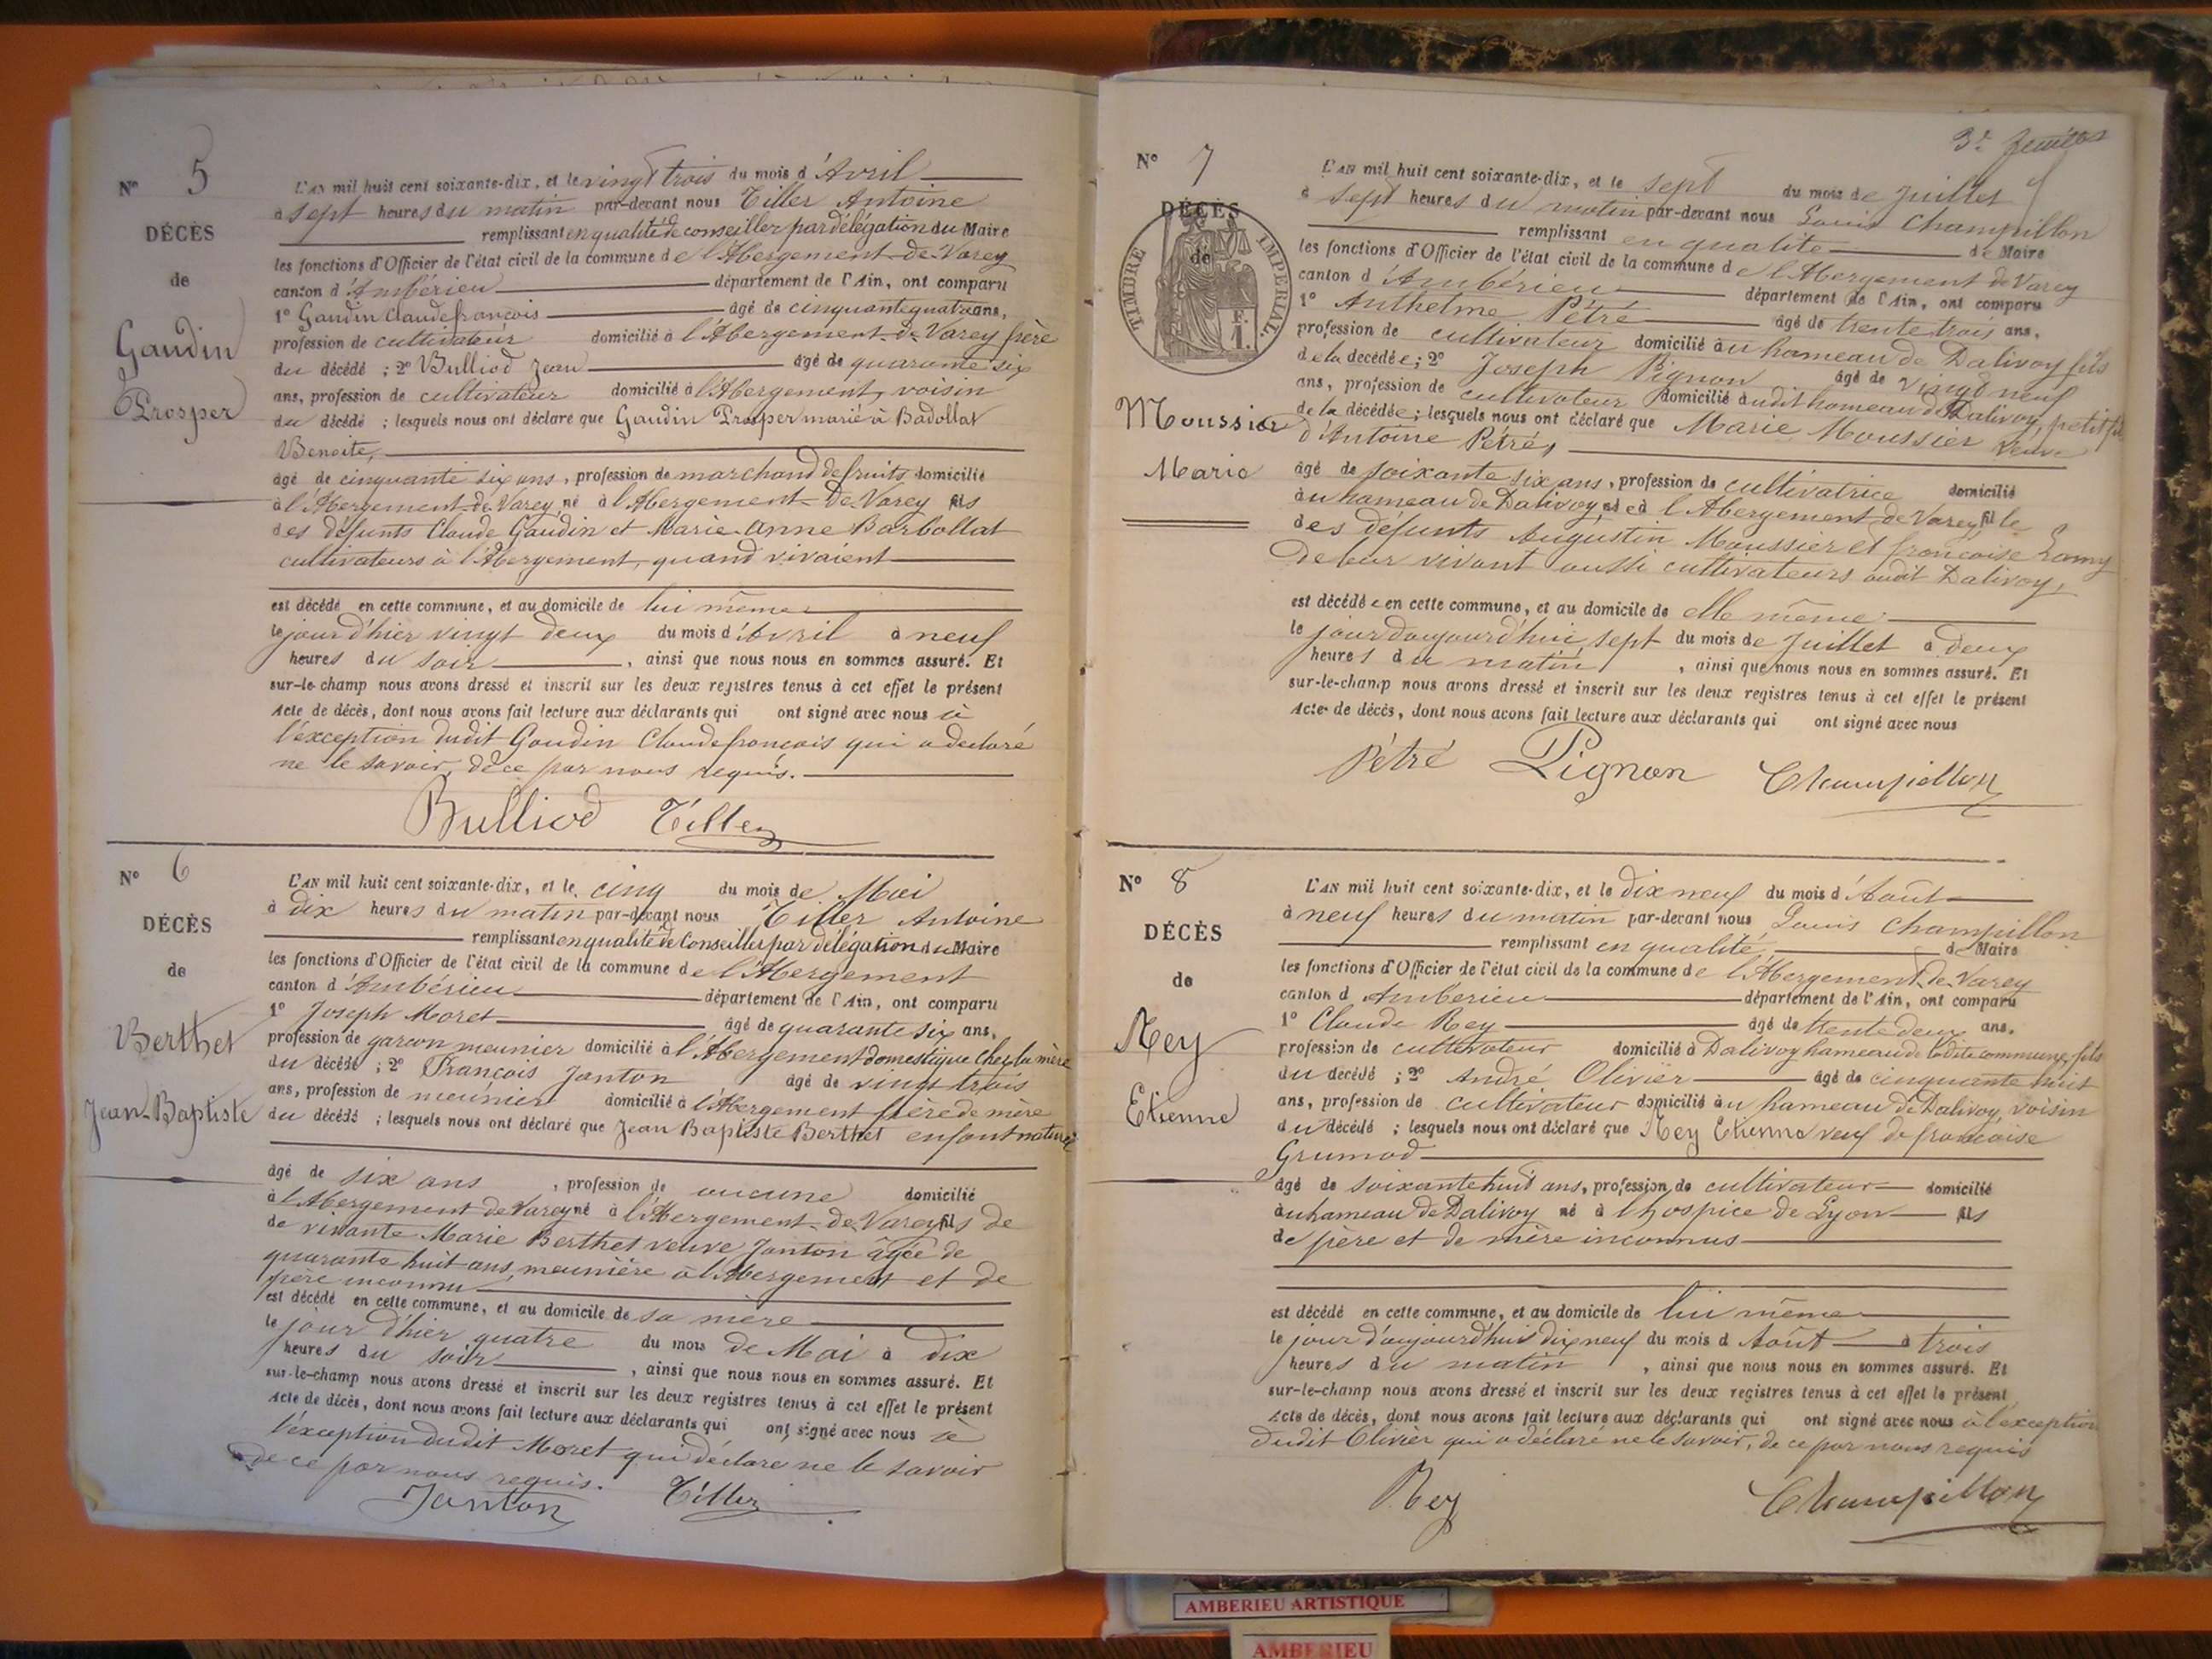 N° 5
DÉCÈS
de
Gaudin
Prosper
L'AN mil huit cent soixante-dix, et le vingt trois du mois d'Avril
à sept heures du matin par-devant nous Tiller Antoine
remplissant en qualité de conseiller par délégation du Maire
les fonctions d'Officier de l'état civil de la commune de l'Abergement-de-Varey
canton d'Ambérieu département de l'Ain, ont comparu
1° Gaudin Claude françois âgé de cinquante quatre ans,
profession de cultivateur domicilié à l'Abergement-de-Varey frère
du décédé ; 2° Bulliod Jean âgé de quarante six
ans, profession de cultivateur domicilié à l'Abergement, voisin
du décédé ; lesquels nous ont déclaré que Gaudin Prosper marié à Badollat
Benoite,
âgé de cinquante six ans, profession de marchand de fruits domicilié
à l'Abergement-de-Varey né à l'Abergement-de-Varey fils
des défunts Claude Gaudin et Marie-Anne Barbollat
cultivateurs à l'Abergement, quand vivaient
est décédé en cette commune, et au domicile de lui même
le jour d'hier vingt deux du mois d'Avril à neuf
heures du soir , ainsi que nous nous en sommes assuré. Et
sur-le-champ nous avons dressé et inscrit sur les deux registres tenus à cet effet le présent
Acte de décès, dont nous avons fait lecture aux déclarants qui ont signé avec nous à
l'éxception dudit Gaudin Claude françois qui a declaré
ne le savoir, de ce par nous requis.
Bulliod Tiller
N° 6
DÉCÈS
de
Berthet
Jean-Baptiste
L'AN mil huit cent soixante-dix, et le cinq du mois de Mai
à dix heures du matin par-devant nous Tiller Antoine
remplissant en qualité de Conseiller par délégation du Maire
les fonctions d'Officier de l'état civil de la commune de l'Abergement
canton d'Ambérieu département de l'Ain, ont comparu
1° Joseph Moret âgé de quarante six ans,
profession de garçon meunier domicilié à l'Abergement domestique chez la mère
du décédé ; 2° François Janton âgé de vingt trois
ans, profession de meunier domicilié à l'Abergement frère de mère
du décédé ; lesquels nous ont déclaré que Jean Baptiste Berthet enfant naturel
âgé de six ans , profession de aucune domicilié
à l'Abergement de Varey né à l'Abergement-de-Varey fils de
de vivante Marie Berthet veuve Janton âgée de
quarante huit ans, meunière à l'Abergement et de
père inconnu
est décédé en cette commune, et au domicile de sa mère
le jour d'hier quatre du mois de Mai à dix
heures du soir , ainsi que nous nous en sommes assuré. Et
sur-le-champ nous avons dressé et inscrit sur les deux registres tenus à cet effet le présent
Acte de décès, dont nous avons fait lecture aux déclarants qui ont signé avec nous à
l'éxception dudit Moret qui déclare ne le savoir
de ce par nous requis.
Janton Tiller
3e feuillet
N° 7
DÉCÈS
de
TIMBRE IMPERIAL
F.
1.
Moussier
Marie
L'AN mil huit cent soixante-dix, et le sept du mois de Juillet
à sept heures du matin par-devant nous Louis Champillon
remplissant en qualité de Maire
les fonctions d'Officier de l'état civil de la commune de l'Abergement de Varey
canton d'Ambérieu département de l'Ain, ont comparu
1° Anthelme Pétré âgé de trente trois ans,
profession de cultivateur domicilié au hameau de Dalivoy fils
de la decédée ; 2° Joseph Pignon âgé de vingt neuf
ans, profession de cultivateur domicilié audit hameau de Dalivoy, petit fils
de la décédée ; lesquels nous ont déclaré que Marie Moussier veuve
d'Antoine Pétré,
âgé de soixante six ans, profession de cultivatrice domicilié
au hameau de Dalivoy née à l'Abergement de Varey, fille
des défunts Augustin Moussier et françoise Lamy
de leur vivant aussi cultivateurs audit Dalivoy,
est décédée en cette commune, et au domicile de elle même
le jour d'aujourd'hui sept du mois de Juillet à deux
heures du matin , ainsi que nous nous en sommes assuré. Et
sur-le-champ nous avons dressé et inscrit sur les deux registres tenus à cet effet le présent
Acte de décès, dont nous avons fait lecture aux déclarants qui ont signé avec nous
Pétré Pignon Champillon
N° 8
DÉCÈS
de
Rey
Etienne
L'AN mil huit cent soixante-dix, et le dix neuf du mois d'Août
à neuf heures du matin par-devant nous Louis Champillon
remplissant en qualité de Maire
les fonctions d'Officier de l'état civil de la commune de l'Abergement-de-Varey
canton d Ambérieu département de l'Ain, ont comparu
1° Claude Rey âgé de trente deux ans,
profession de cultivateur domicilié à Dalivoy hameau de ladite commune, fils
du decédé ; 2° André Olivier âgé de cinquante huit
ans, profession de cultivateur domicilié au hameau de Dalivoy, voisin
du décédé ; lesquels nous ont déclaré que Rey Etienne veuf de françoise
Grumod
âgé de soixante huit ans, profession de cultivateur domicilié
au hameau de Dalivoy né à l'hospice de Lyon fils
de père et de mère inconnus
est décédé en cette commune, et au domicile de lui même
le jour d'aujourd'hui dix neuf du mois d Août à trois
heures du matin , ainsi que nous nous en sommes assuré. Et
sur-le-champ nous avons dressé et inscrit sur les deux registres tenus à cet effet le présent
Acte de décès, dont nous avons fait lecture aux déclarants qui ont signé avec nous à l'exception
dudit Olivier qui a déclaré ne le savoir, de ce par nous requis
Rey Champillon
AMBERIEU ARTISTIQUE
AMBERIEU